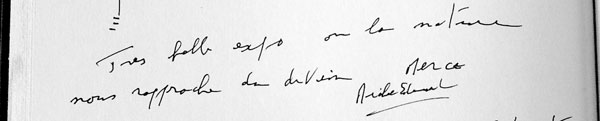 Tres belle expo ou la nature
nous rapproche du divin Merco